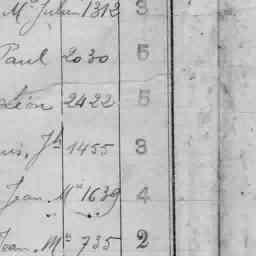 Mce Julien 1312 3
Paul 2030 5
Léon 2422 5
uis, Jh 1455 3
Jean Mie 1639 4
" "
Jean. Mie 735 2